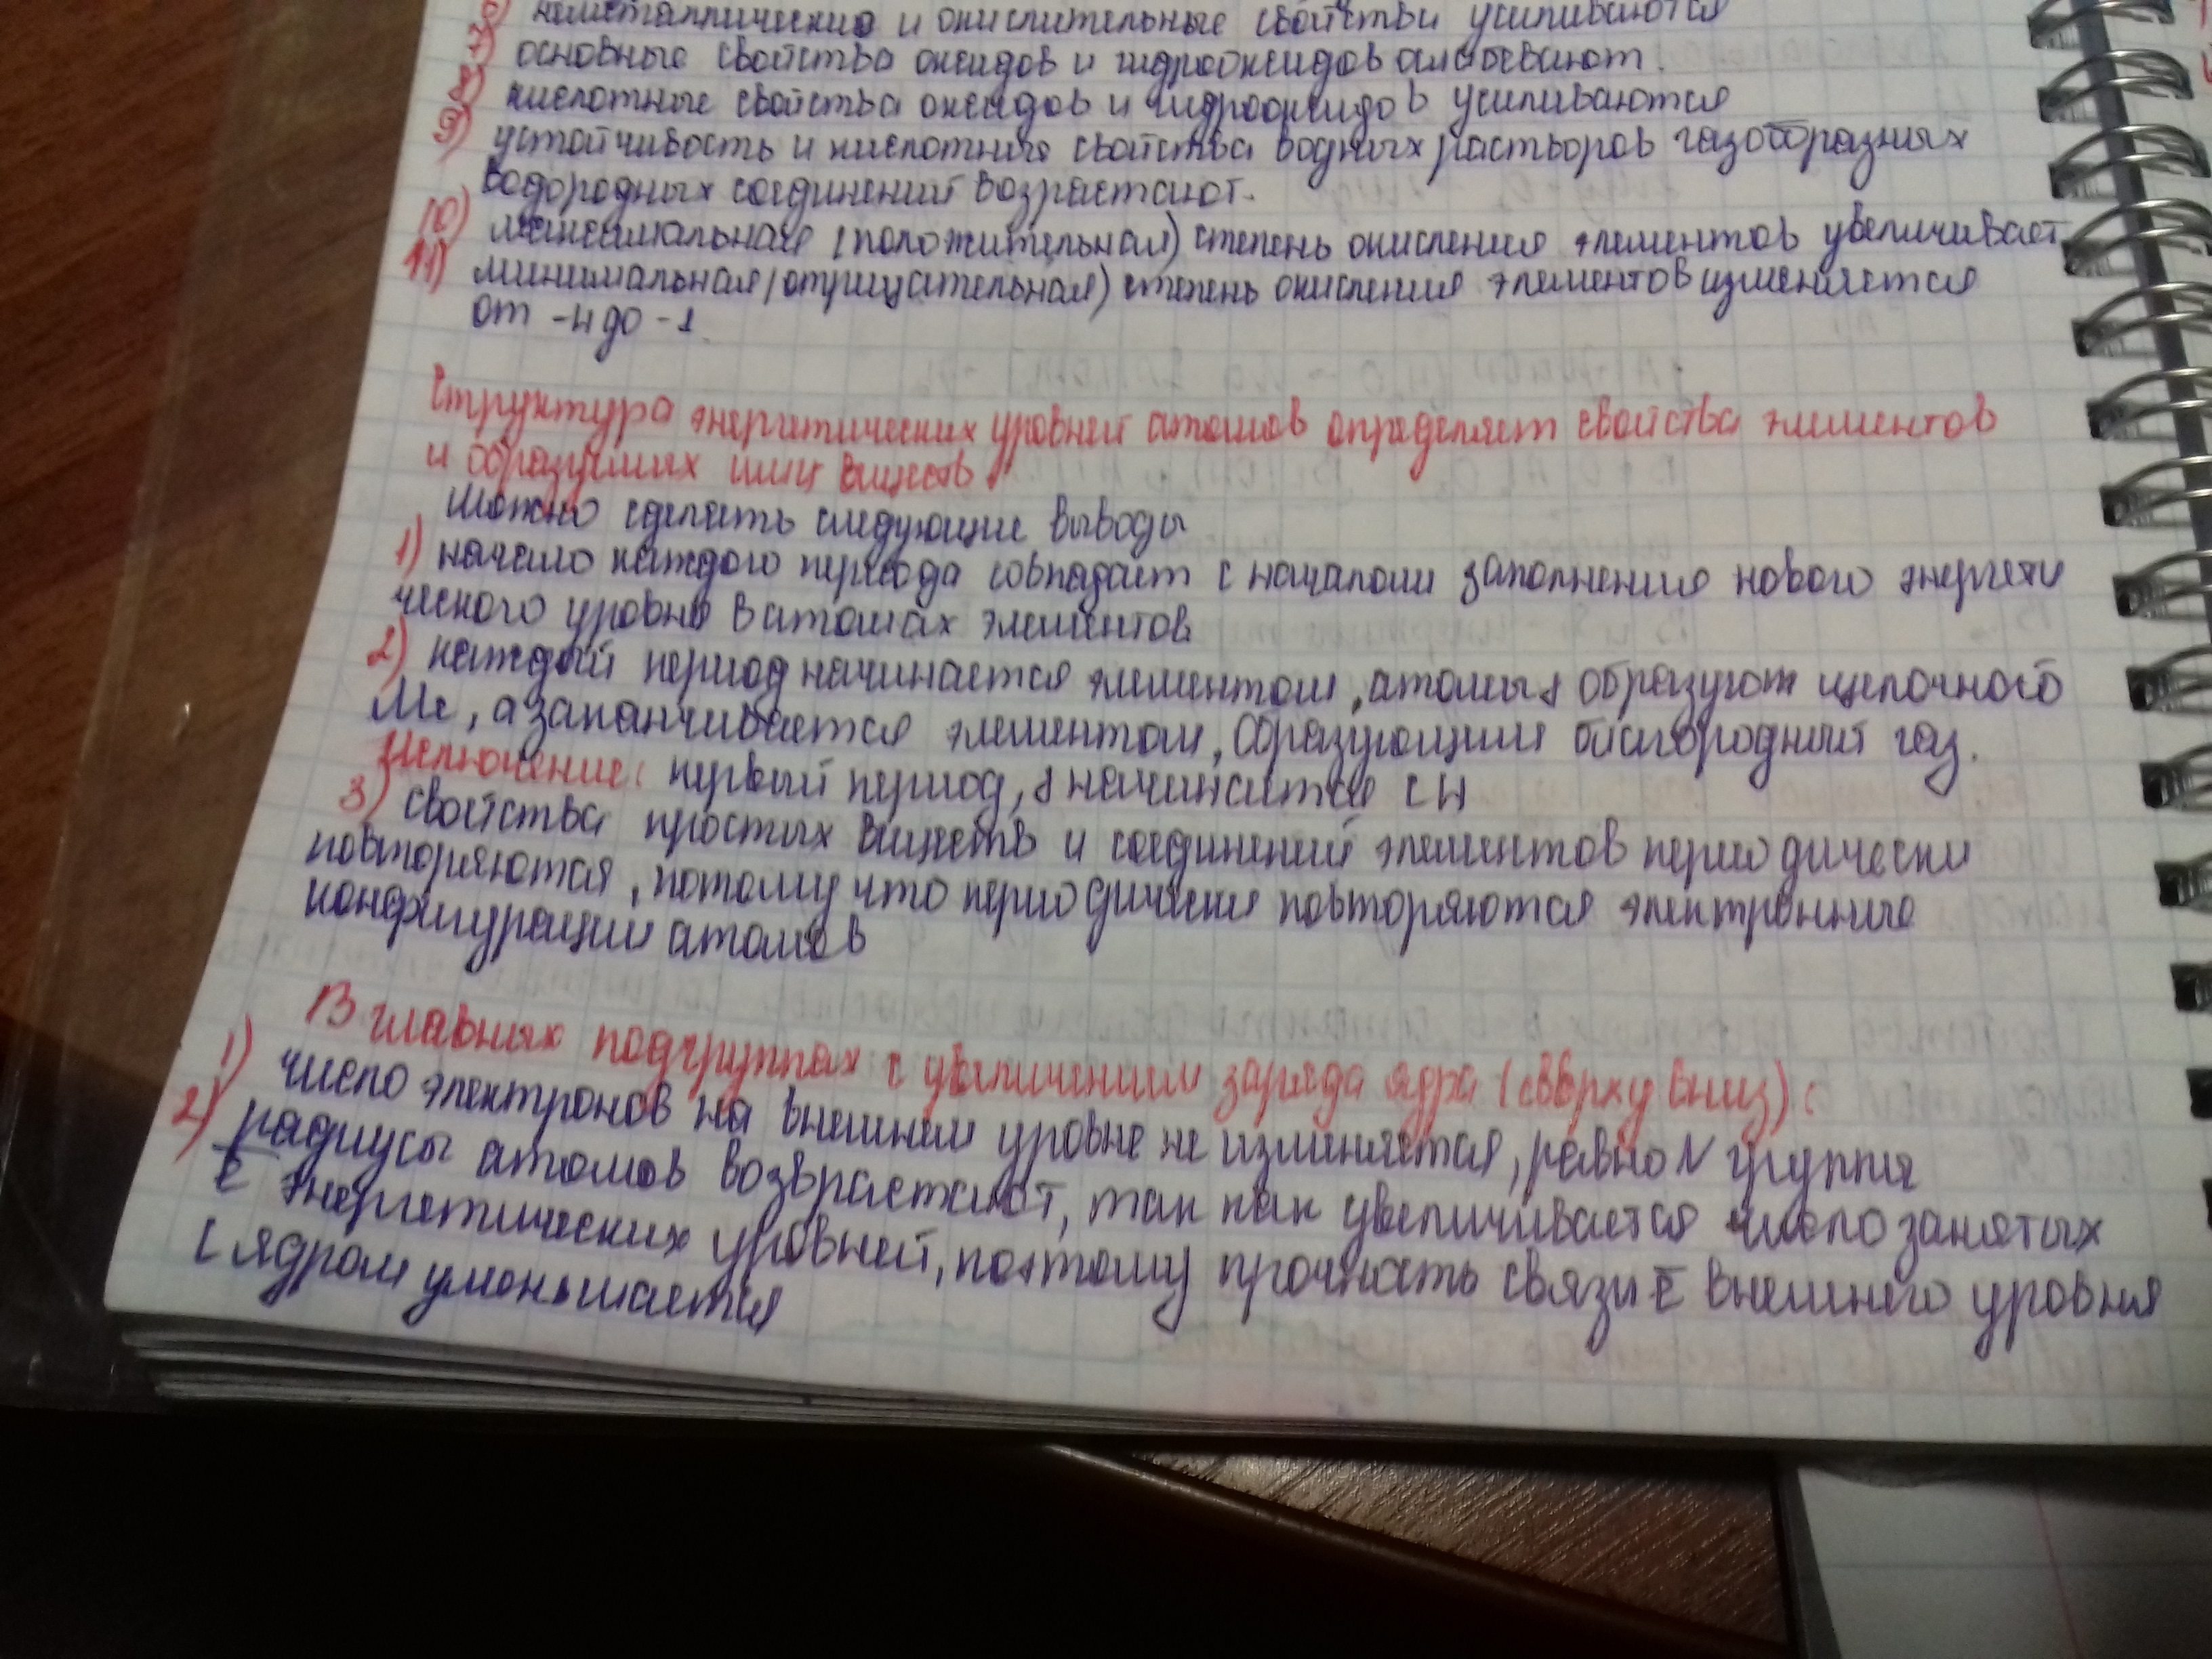 6) неметаллические и окислительные свойства усиливаются
7) основные свойства оксидов и гидрооксидов ослабевают.
8) кислотные свойства оксидов и гидрооксидов усиливаются
9) устойчивость и кислотные свойства водных растворов газообразных
водородных соединений возрастают.
10) максимальная (положительная) степень окисления элементов увеличивает
11) минимальная (отрицательная) степень окисления элементов изменяется
от -4 до -1.
Структура энергетических уровней атомов определяет свойства элементов
и образуемых ими веществ.
Можно сделать следующие выводы
1) начало каждого периода совпадает с началом заполнения нового энергети
ческого уровня в атомах элементов
2) каждый период начинается элементом, атомы образуют щелочного
Ме, а заканчивается элементом, образующим благородный газ.
Исключение: первый период, начинается с H
3) свойства простых веществ и соединений элементов периодически
повторяются, потому что периодически повторяются электронные
конфигурации атомов
В главных подгруппах с увеличением заряда ядра (сверху вниз):
1) число электронов на внешнем уровне не изменяется, равно N группы
2) радиусы атомов возврастают, так как увеличивается число занятых
ē энергетических уровней, поэтому прочность связи ē внешнего уровня
с ядром уменьшается